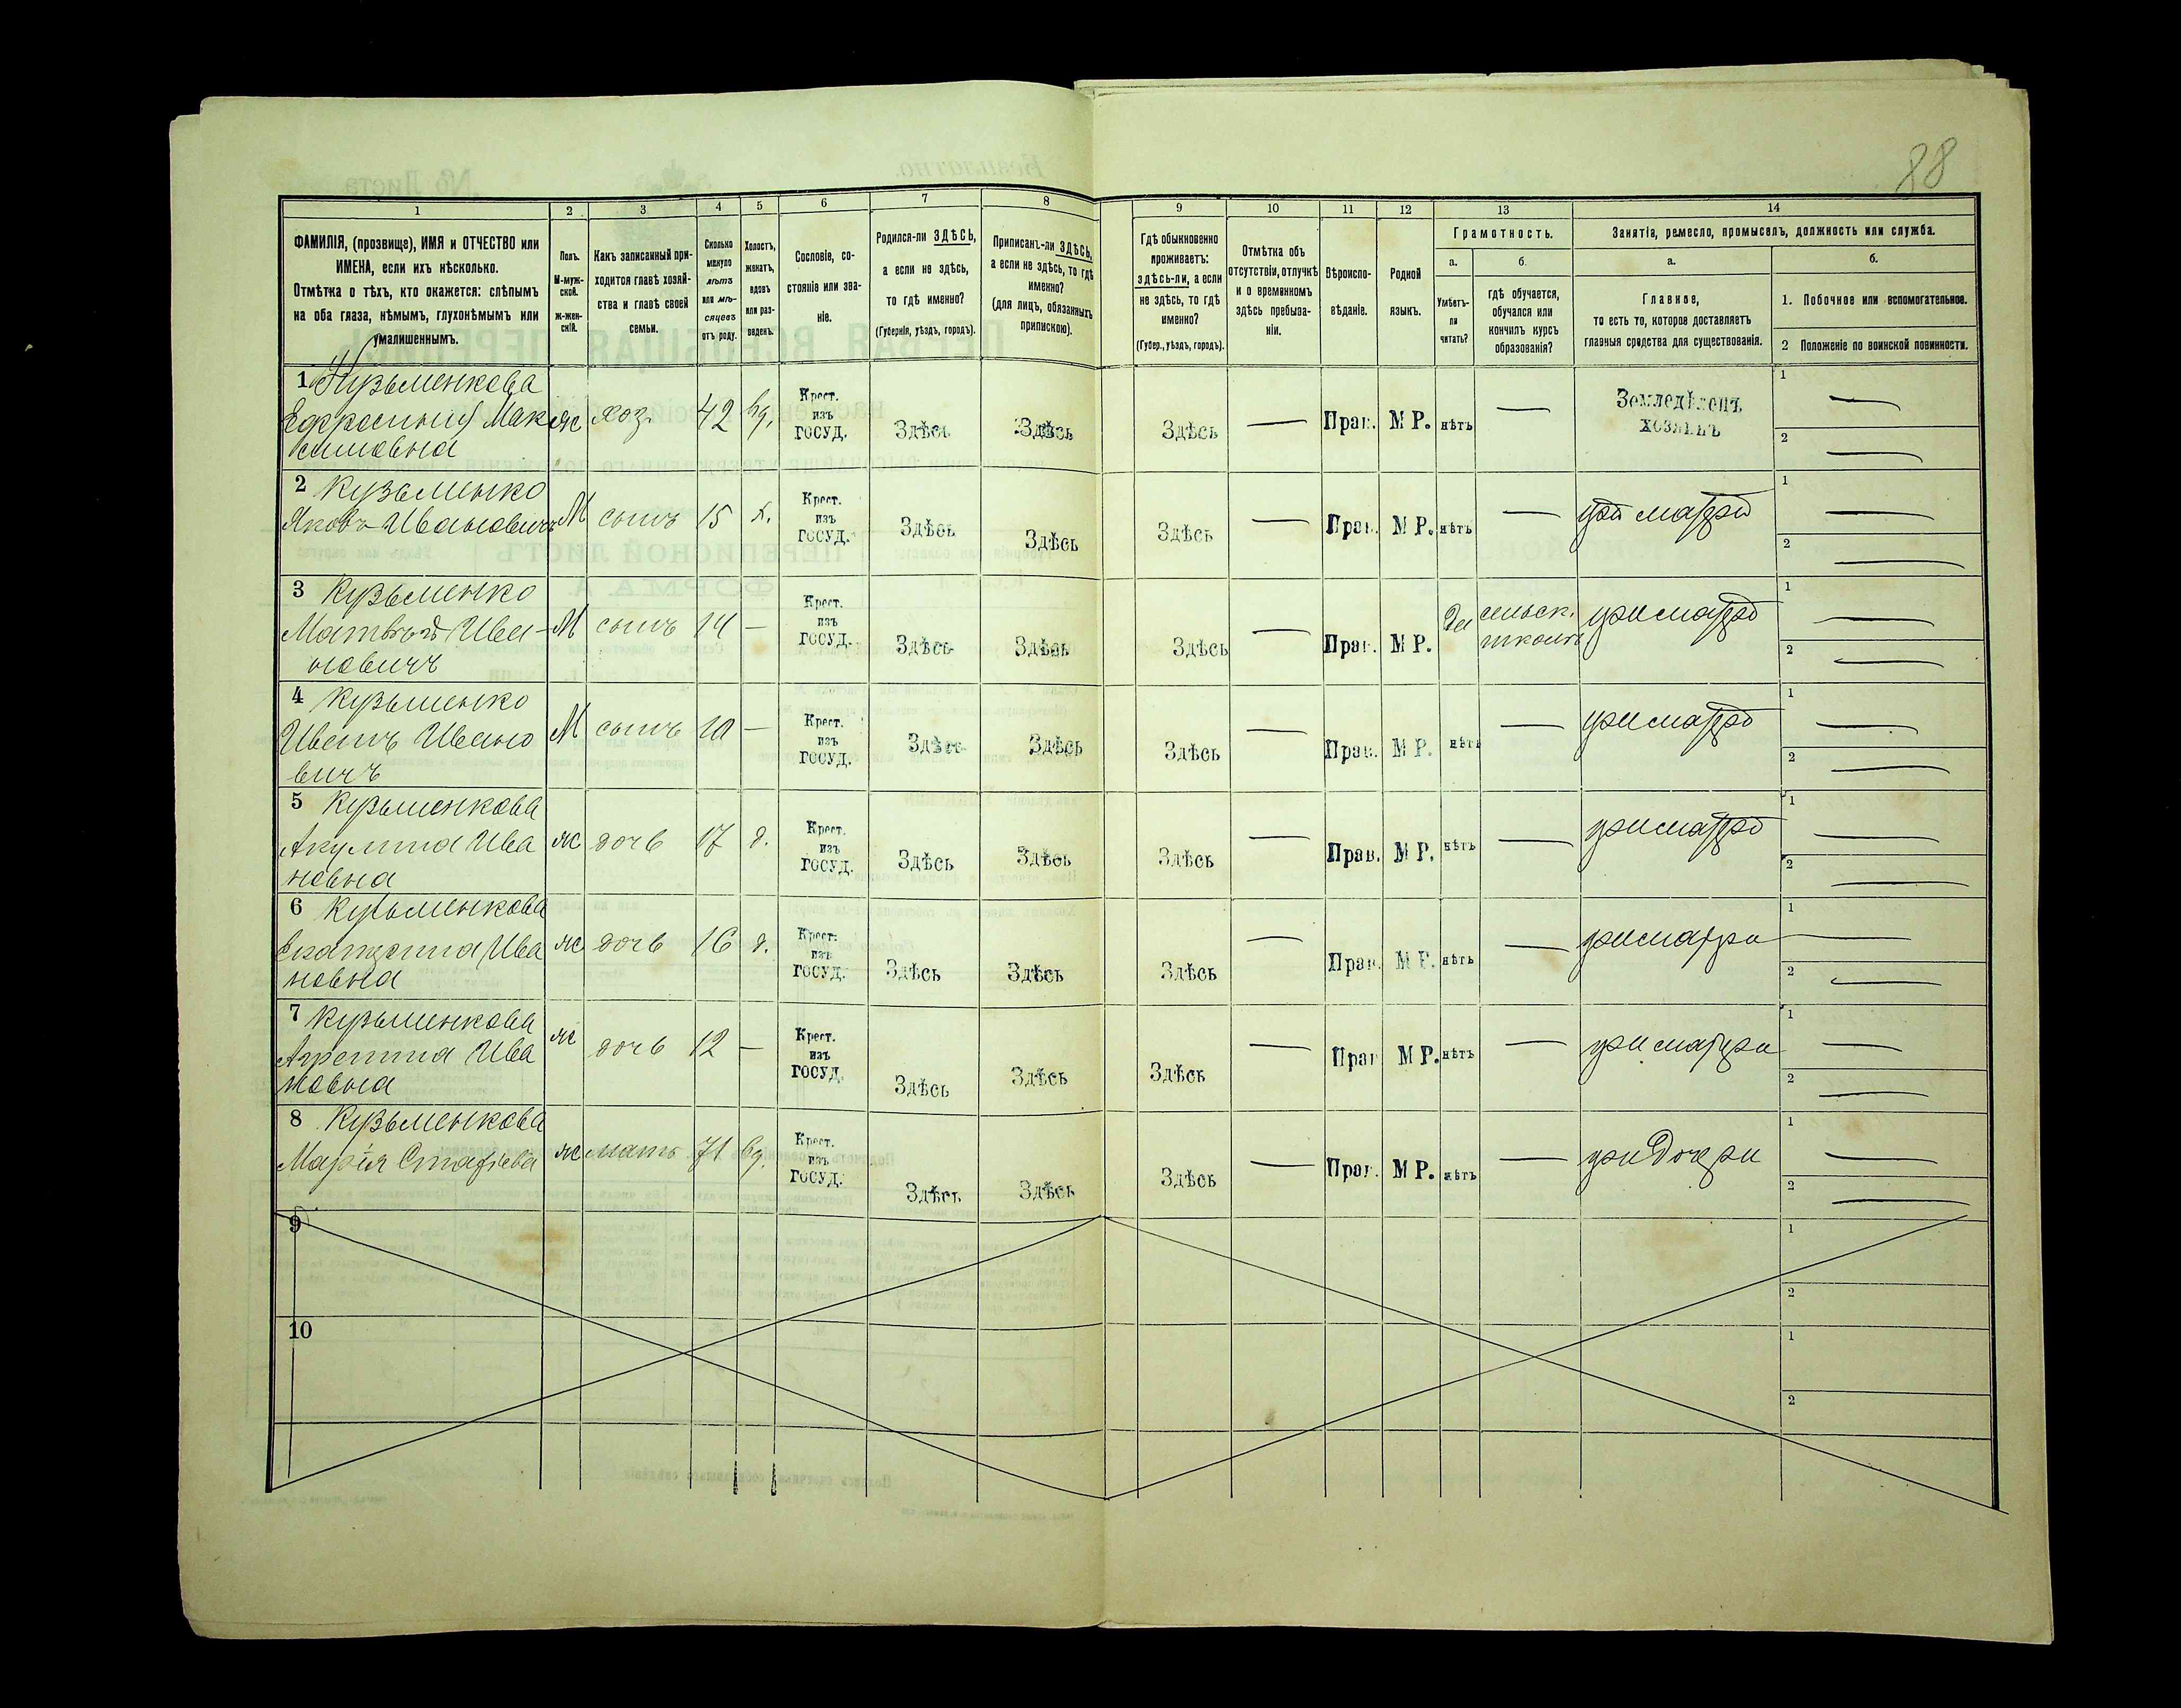 88
1 2 3 4 5 6 7 8 9 10 11 12 13 14
ФАМИЛІЯ, (прозвище), ИМЯ и ОТЧЕСТВО или
ИМЕНА, если ихъ нѣсколько.
Отмѣтка о тѣхъ, кто окажется: слѣпымъ
на оба глаза, нѣмымъ, глухонѣмымъ или
умалишеннымъ.
Полъ.
М-муж-
ской.
ж-жен-
скій.
Какъ записанный при-
ходится главѣ хозяй-
ства и главѣ своей
семьи.
Сколько
минуло
лѣтъ
или мѣ-
сяцевъ
отъ роду.
Холостъ,
женатъ,
вдовъ
или раз-
веденъ.
Сословіе, со-
стояніе или зва-
ніе.
Родился-ли ЗДѢСЬ,
а если не здѣсь,
то гдѣ именно?
(Губернія, уѣздъ, городъ).
Приписанъ-ли ЗДѢСЬ,
а если не здѣсь, то гдѣ
именно?
(для лицъ, обязанныхъ
припискою).
Гдѣ обыкновенно
проживаетъ:
здѣсь-ли, а если
не здѣсь, то гдѣ
именно?
(Губер., уѣздъ, городъ).
Отмѣтка объ
отсутствіи, отлучкѣ
и о временномъ
здѣсь пребыва-
ніи.
Вѣроиспо-
вѣданіе.
Родной
языкъ.
Грамотность.
а.
Умѣетъ-
ли
читать?
б.
гдѣ обучается,
обучался или
кончилъ курсъ
образованія?
Занятія, ремесло, промыселъ, должность или служба.
а.
Главное,
то есть то, которое доставляетъ
главныя средства для существованія.
б.
1. Побочное или вспомогательное.
2 Положеніе по воинской повинности.
1 Кузьменкова
Ефросинія Мак
симовна
ж хоз. 42 вд.
Крест.
изъ
ГОСУД.
Здѣсь Здѣсь Здѣсь — Прав. М Р. нѣтъ —
Земледѣлецъ
хозяинъ
1 —
2 —
2 Кузьменко
Яковъ Ивановичъ
М сынъ 15 х.
Крест.
изъ
ГОСУД.
Здѣсь Здѣсь Здѣсь — Прав. М Р. нѣтъ —
1 —
2 —
3 Кузьменко
Матвѣй Ива-
новичъ
М сынъ 14 —
Крест.
изъ
ГОСУД.
Здѣсь Здѣсь Здѣсь — Прав. М Р. да
сельск.
школѣ
1 —
2 —
4 Кузьменко
Иванъ Ивано
вичъ
М сынъ 10 —
Крест.
изъ
ГОСУД.
Здѣсь Здѣсь Здѣсь — Прав. М Р. нѣтъ —
1 —
2 —
5 Кузьменкова
Акулина Ива
новна
ж дочь 17 д.
Крест.
изъ
ГОСУД.
Здѣсь Здѣсь Здѣсь — Прав. М Р. нѣтъ —
1 —
2 —
6 Кузьменкова
Екатерина Ива
новна
ж дочь 16 д.
Крест.
изъ
ГОСУД.
Здѣсь Здѣсь Здѣсь — Прав. М Р. нѣтъ — при матери
1 —
2 —
7 Кузьменкова
Ива
новна
ж дочь 12 —
Крест.
изъ
ГОСУД.
Здѣсь Здѣсь Здѣсь — Прав М Р. нѣтъ — при матери
1 —
2 —
8 Кузьменкова
Марія
ж мать 71 вд.
Крест.
изъ
ГОСУД.
Здѣсь Здѣсь Здѣсь — Прав. М Р. нѣтъ — при дочери
1 —
2 —
9
1
2
10
1
2